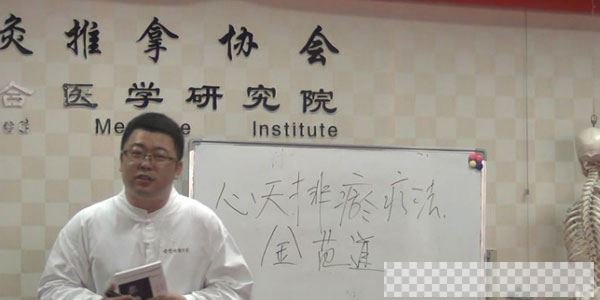 灸推拿协会
合医学研究院
Me Institute
心天排瘀疗法.
金苑道